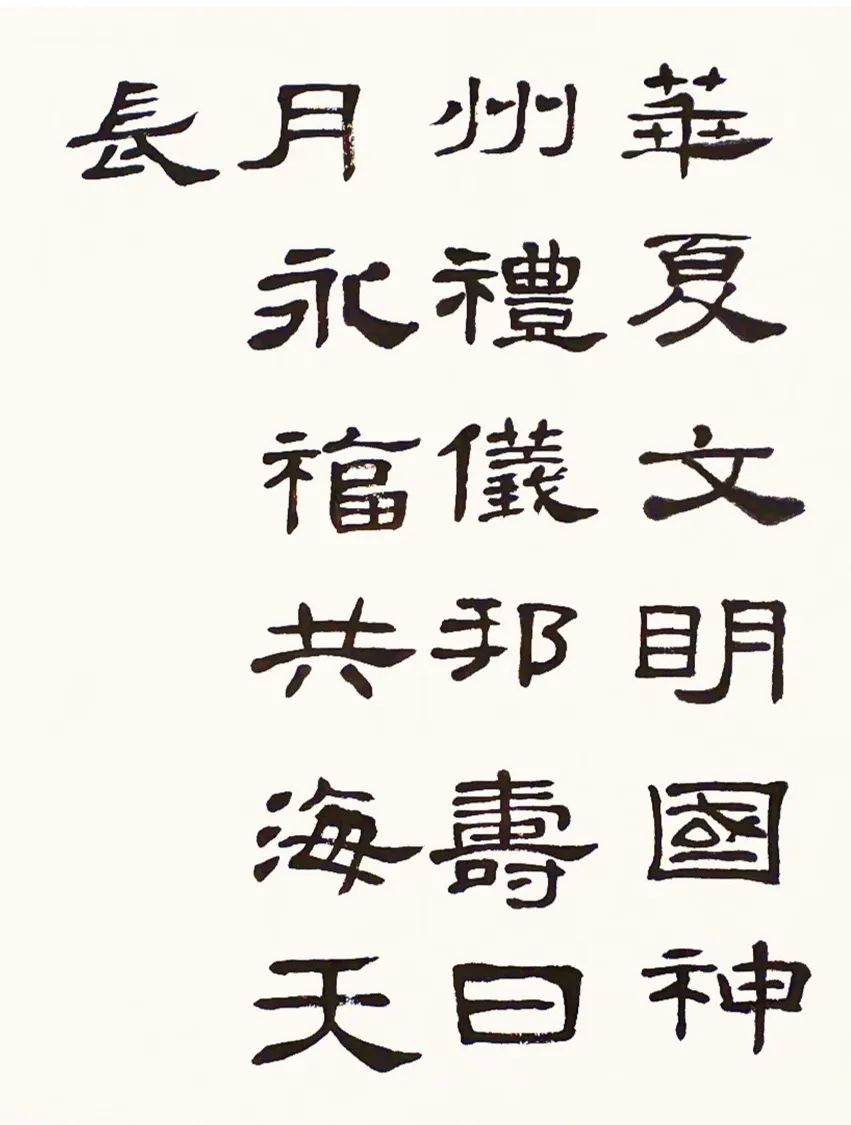 華夏文明國神
州禮儀邦壽日
月永福共海天
長